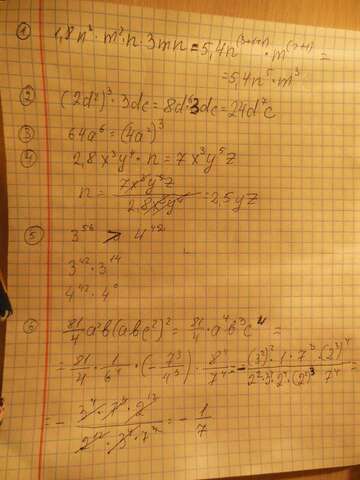 ① 1,8n³·m²·n·3mn = 5,4n⁽³⁺¹⁺¹⁾·m⁽²⁺¹⁾ =
= 5,4n⁵·m³
② (2d²)³·3dc = 8d⁶3dc = 24d⁷c
③ 64a⁶ = (4a²)³
④ 2,8x³y⁴·n = 7x³y⁵z
n = 7x³y⁵z / 2,8x³y⁴ = 2,5yz
⑤ 3⁵⁶ > 4⁴²
3⁴²·3¹⁴
4⁴²·4⁰
⑥ 81/4 a²b(abc²)² = 81/4·a⁴b³c⁴ =
= 81/4·1/6⁴·(-7³/4³)·8⁴/7⁴ = -(3²)²·1·7³·(2³)⁴ / 2²·3⁴·2⁴·(2²)³·7⁴ =
= - 3⁴·7³·2¹² / 2¹²·3⁴·7⁴ = - 1/7